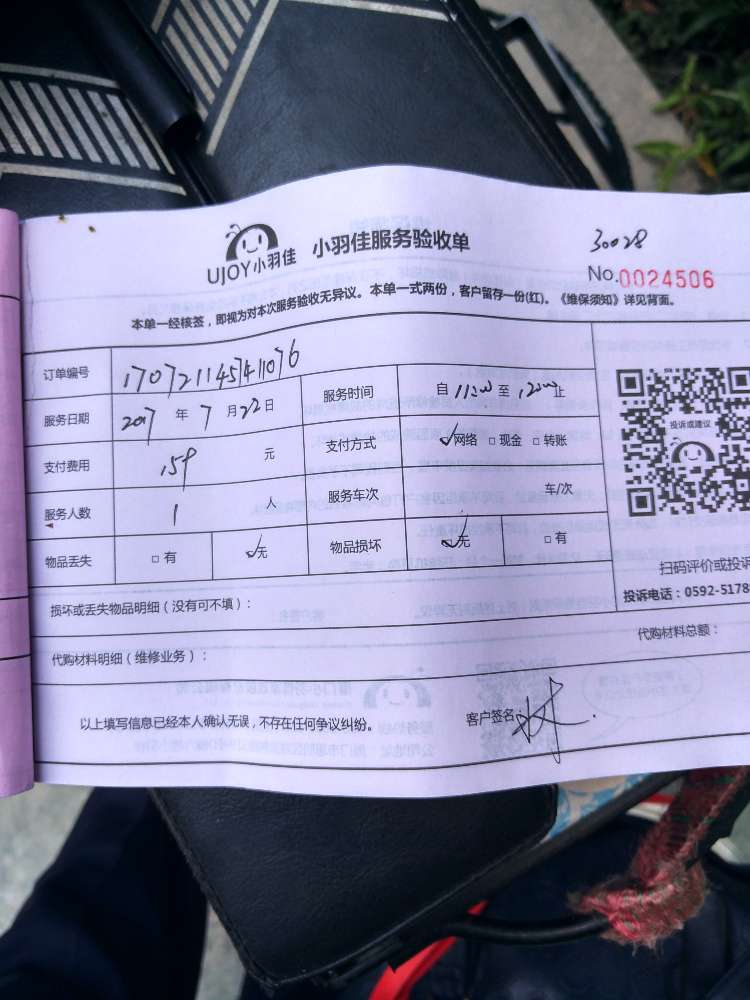 UJOY小羽佳 小羽佳服务验收单
30028
No.0024506
本单一经核签，即视为对本次服务验收无异议。本单一式两份，客户留存一份(红)。《维保须知》详见背面。
订单编号 170721145741076
服务日期 2017 年 7 月 22 日 服务时间 自 11:00 至 12:00 止
支付费用 159 元 支付方式 ✓网络 □现金 □转账
服务人数 1 人 服务车次 车/次
物品丢失 □有 ✓无 物品损坏 ✓无 □有
投诉或建议
扫码评价或投诉
投诉电话：0592-5178
损坏或丢失物品明细（没有可不填）：
代购材料明细（维修业务）： 代购材料总额：
以上填写信息已经本人确认无误，不存在任何争议纠纷。 客户签名：